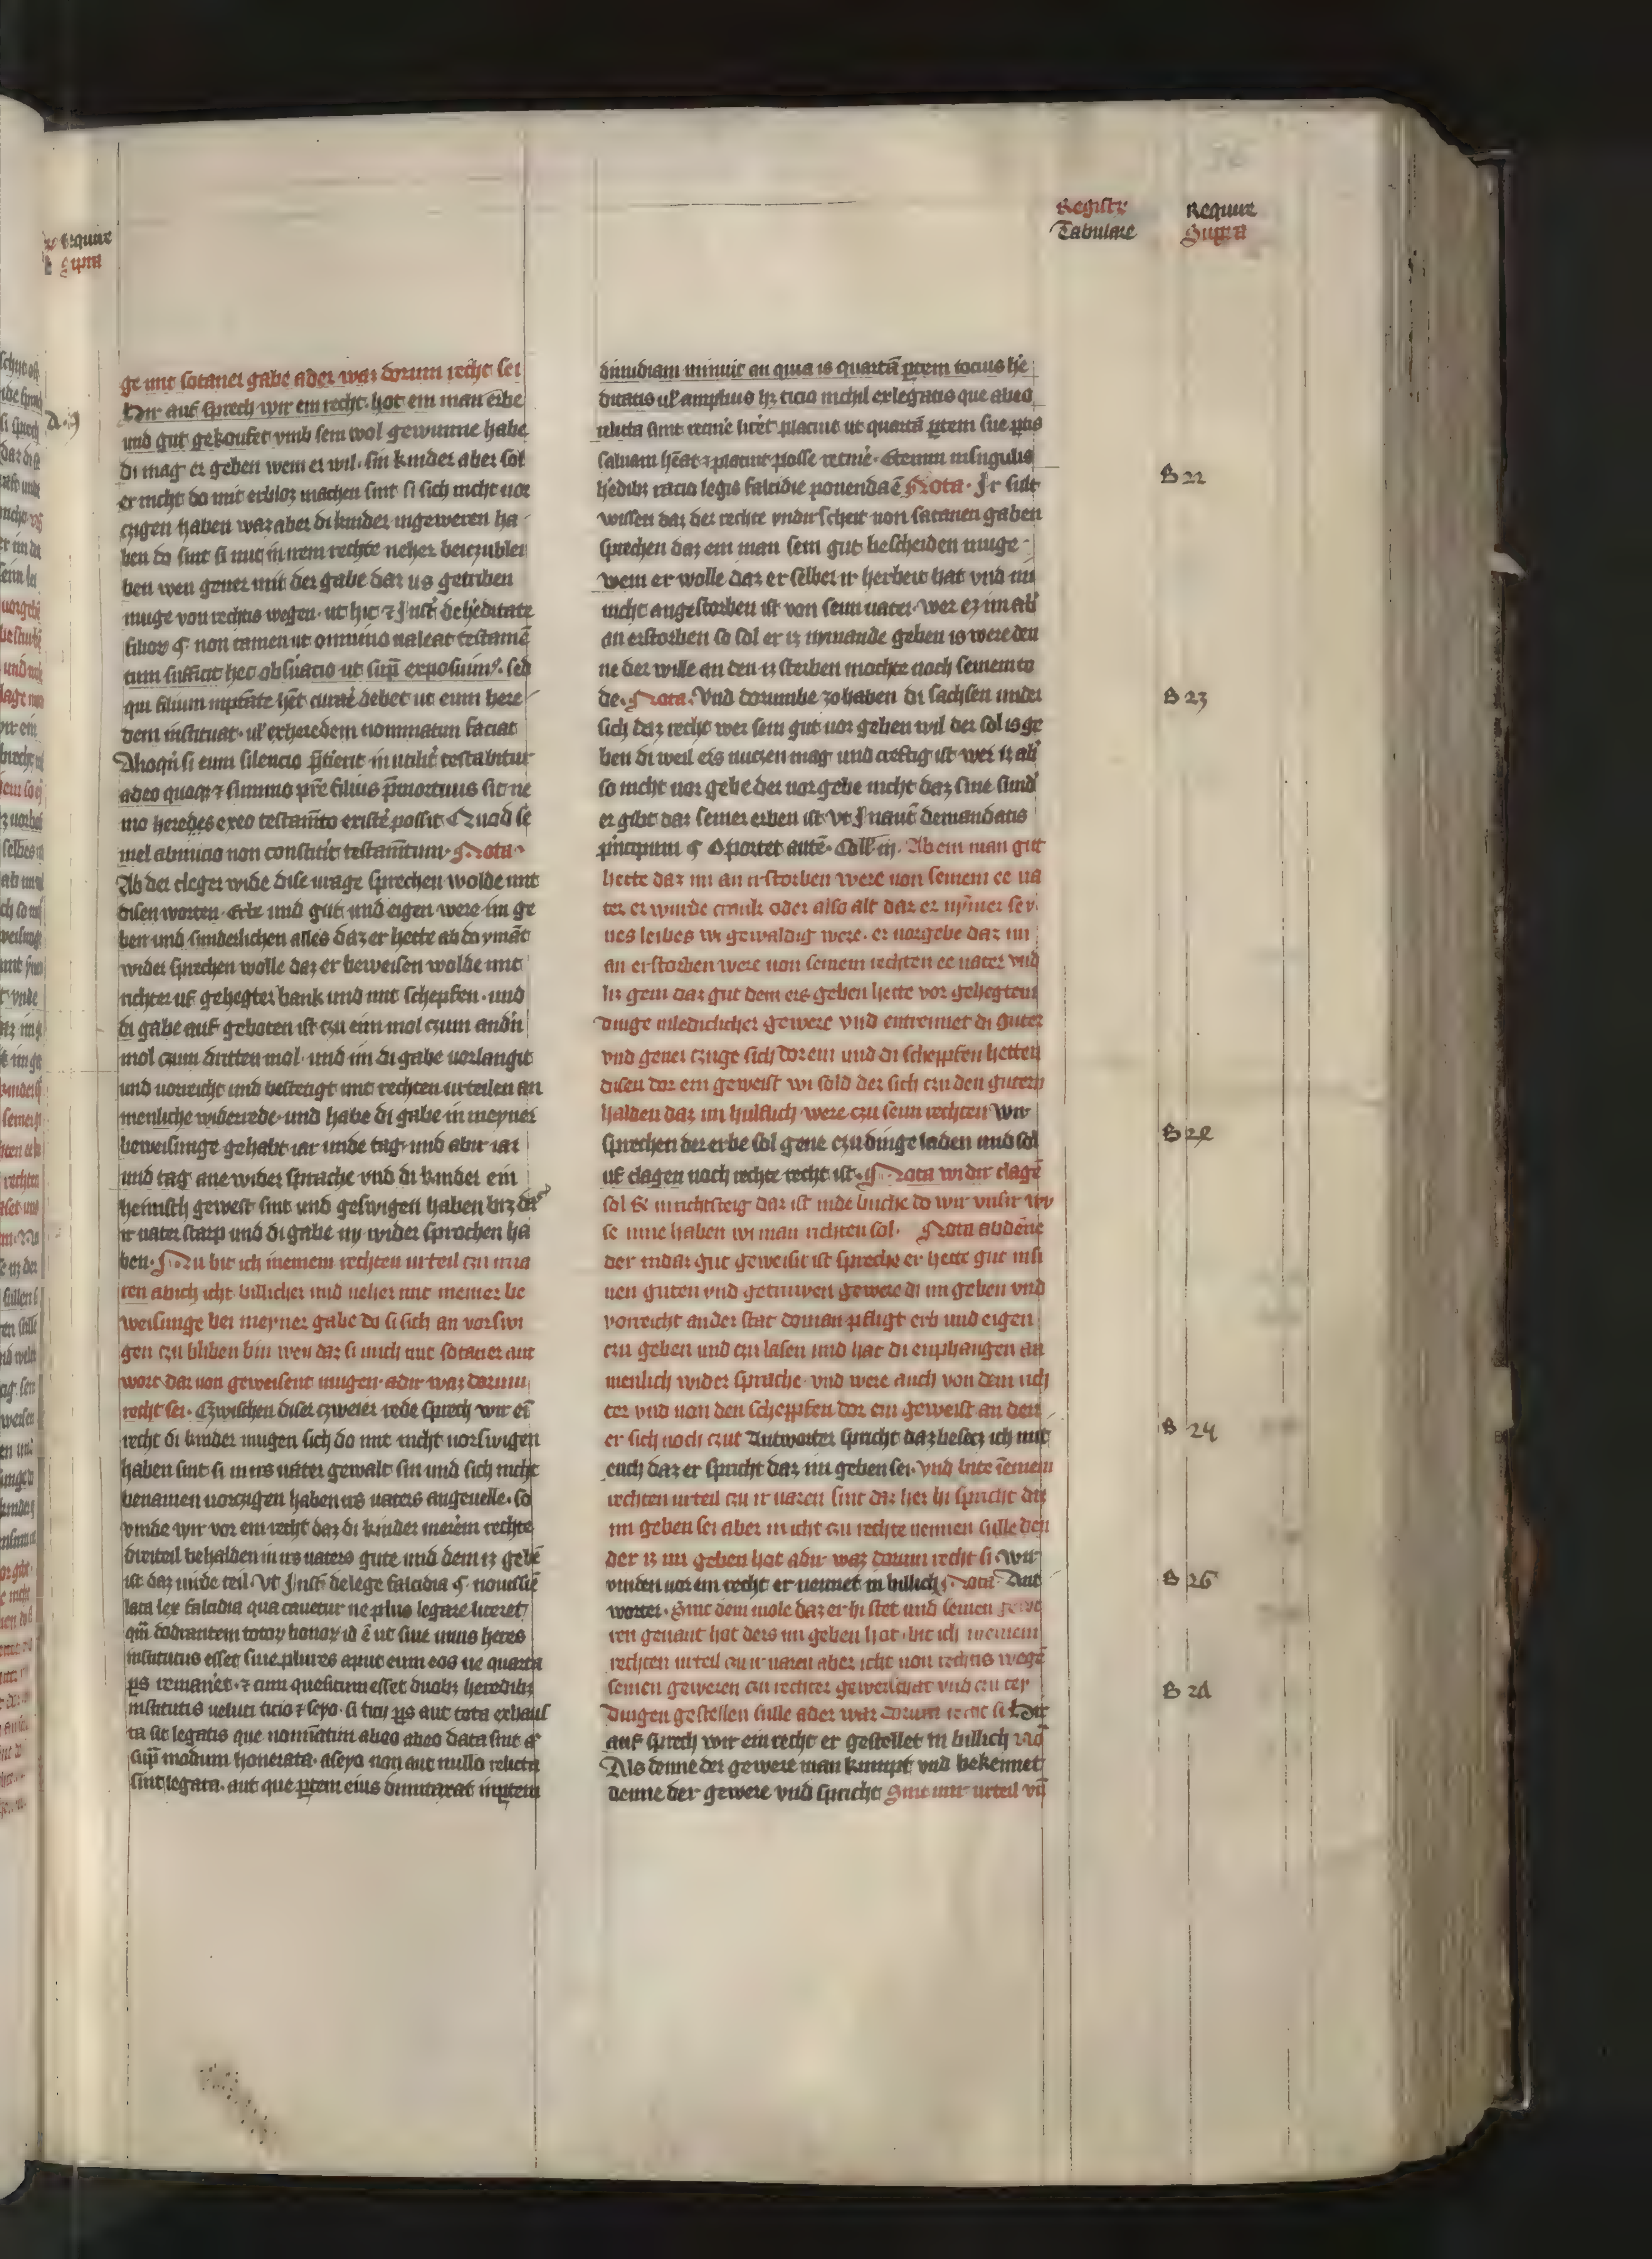 Registr Require
Tabulare Supra
ge mit sotaner gabe ader waz dorum recht sei
Hir auf sprech wir ein recht. hot ein man erbe
und gut gekoufet vmb sein wol gewunne habe
di mag er geben wem er wil. sin kinder aber sol
er nicht do mit erbloz machen sint si sich nicht vor
czigen haben waz aber di kinder in geweren ha
ben do sint si mit irem rechte neher bei czublei
ben wen gener mit der gabe daz us getriben
muge von rechtis wegen. ut hic et Inst. de heditate
filior. ¶ non tamen ut omnino ualeat testamē
tum sufficit hec obseruacio ut supra exposuimus. sed
qui filium in potestate habet curare debet ut eum here
dem instituat. uel exheredem nominatim faciat
Alioquin si eum silencio preterierit inutiliter testabitur
adeo quidem et si uiuo patre filius premortuus sit ne
mo heredes ex eo testamento existere possit Quod se
mel ab inicio non constitit testamentum. Nota
Ab der cleger wide dise urage sprechen wolde mit
disen worten. Erbe und gut und eigen were im ge
ben und sunderlichen alles daz er hette ab do ymāt
wider sprechen wolle daz er beweisen wolde mit
richter uf gehegter bank und mit schepfen. und
di gabe auf geboten ist czu eim mol czum andn
mol czum dritten mol. und im di gabe vorlangit
und uorreicht und bestetigt mit rechten urteilen an
menliche widerrede. und habe di gabe in meyner
beweisunge gehabt iar unde tag. und abir iar
und tag ane wider sprache vnd di kinder ein
heimisch gewest sint und geswigen haben biz daz
ir uater starp und di gabe ny wider sprochen ha
ben. Nu bit ich in einem rechten urteil czu irua
ren ab ich icht billicher und neher mit meiner be
weisunge bei meyner gabe do si sich an vorswi
gen czu bliben bin wen daz si mich mit sotaner ant
wort dar uon geweisent mugen. adir waz dorum
recht sei. Czwischen diser czweier rede sprech wir ein
recht di kinder mugen sich do mit nicht uorswigen
haben sint si in irs uater gewalt sin und sich nicht
benamen uorczigen haben irs uaters angeuelle. so
vinde wir vor ein recht daz di kinder in irem rechte
dirteil behalden in irs uaters gute und dem iz gebē
ist daz uirde teil. Vt Inst. de lege falcidia ¶. nouissie
lata lex falcidia qua cauetur ne plus legare liceret
qm dodrantem totor bonor id ē ut siue unus heres
institutus esset siue plures aput eum eos ue quarta
ps remaneret. et cum quesitum esset duobz heredibz
institutis ueluti ticio et seyo. si ticij ps aut tota exhaus
ta sit legatis que nominatim ab eo data sint aut
supra modum honerata. a seyo non aut nullo relicta
sint legata. aut que ptem eius dumtaxat in ptem
dimidiam minuit an quia is quartā ptem tocius he
ditatis ul amplius hz ticio nichil ex legatis que ab eo
relicta sunt retinere liceret placuit ut quartā ptem sue ptis
saluam heat et placuit posse retinere. Etenim in singulis
hedibz racio legis falcidie ponenda ē Nota. Ir sult
wissen daz der rechte vndirscheit uon satanen gaben
sprechen daz ein man sein gut bescheiden muge
wem er wolle daz er selber ir herbeit hat vnd im
nicht angestorben ist von seim uater. wer ez im ab
an erstorben so sol er iz nymande geben is were den
ne der wille an den iz sterben mochte noch seinem to
de. Nota. Vnd dorumbe zo haben di sachsen under
sich daz recht wer sein gut uor geben wil der sol is ge
ben di weil ers nuczen mag und creftig ist wer iz ab
so nicht uor gebe der uorgebe nicht daz sine sund
er gibt daz seiner erben ist. Vt In autē de mandatis
principum ¶ Oportet autē. Coll iij. Ab ein man gut
hette daz im an irstorben were uon seinem ee ua
ter er wurde crank oder also alt daz er nymer sey
nes leibes wi gewaldig were. er uorgebe daz im
an erstorben were uon seinem rechten ee uater vnd
hiz gein daz gut dem ers geben hette vor gehegtem
dinge mit ledichlicher gewere vnd entremet di guter
vnd gener czuge sich dorein und di scheppfen hetten
disen dor ein geweist wi sold der sich czu den gutern
halden daz im hulflich were czu seim rechten Wir
sprechen der erbe sol gene czu dinge laden und sol
uf clagen noch rechte recht ist. Nota wi dir clage
sol in richtsteig daz ist in dem buche do wir vnsir wi
se inne haben wi man richten sol. Nota ab dēne
der in daz gut geweisit ist spreche er hette gut in si
nen guten vnd getruwen gewere di im geben vnd
vorreicht an der stat do man pfligt erb und eigen
czu geben und czu lasen und hat di enphangen an
menlich wider sprache. vnd were auch von dem rich
ter vnd uon den scheppfen dor ein geweist an den
er sich noch czut Antworter spricht daz besecz ich mit
euch daz er spricht daz im geben sei. vnd bite in einem
rechten urteil czu ir uaren sint daz her hi spricht daz
im geben sei aber in icht czu rechte nennen sulle den
der iz im geben hot adir waz dorum recht si. Wir
vinden uor ein recht er nennet in billich. Nota. Ant
worter. Sint dem mole daz er hi stet und seinen gewe
ren genant hat ders im geben hot. bit ich in einem
rechten urteil czu ir uaren aber icht uon rechtis wege
seinen geweren czu rechter gewerschaft vnd czu tey
dingen gestellen sulle ader waz dorum recht si Hir
auf sprech wir ein recht er gestellet in billich
Als denne der gewere man kumpt vnd bekennet
denne der gewere vnd spricht Sint mir urteil vn
B 22
B 23
B 2e
B 24
B 26
B 2d